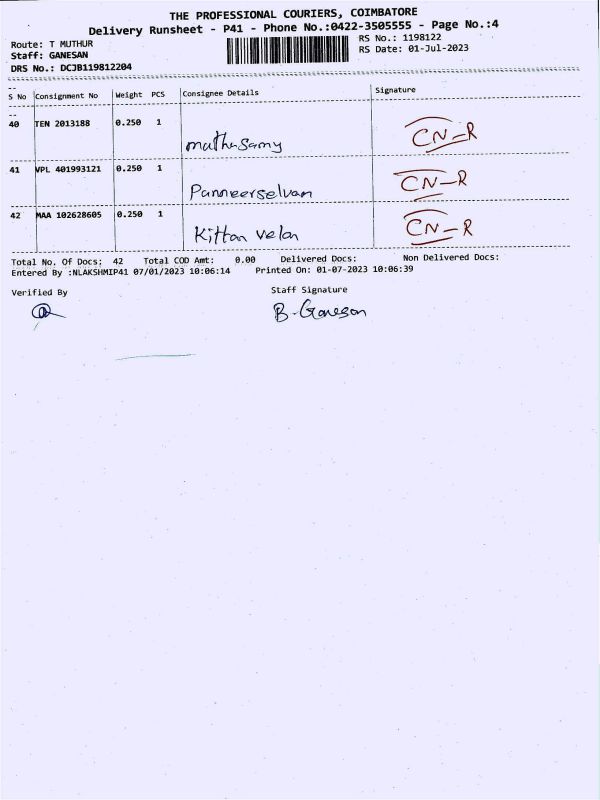 THE PROFESSIONAL COURIERS, COIMBATORE
Delivery Runsheet - P41 - Phone No.:0422-3505555 - Page No.:4
Route: T MUTHUR
RS No.: 1198122
Staff: GANESAN
RS Date: 01-Jul-2023
DRS No.: DCJB119812204
S No Consignment No Weight PCS Consignee Details Signature
40 TEN 2013188 0.250 1
muthusamy CN-R
41 VPL 401993121 0.250 1
Panneerselvam CN-R
42 MAA 102628605 0.250 1
Kittan velan CN-R
Total No. Of Docs: 42 Total COD Amt: 0.00 Delivered Docs: Non Delivered Docs:
Entered By :NLAKSHMIP41 07/01/2023 10:06:14 Printed On: 01-07-2023 10:06:39
Verified By Staff Signature
B. Ganesan